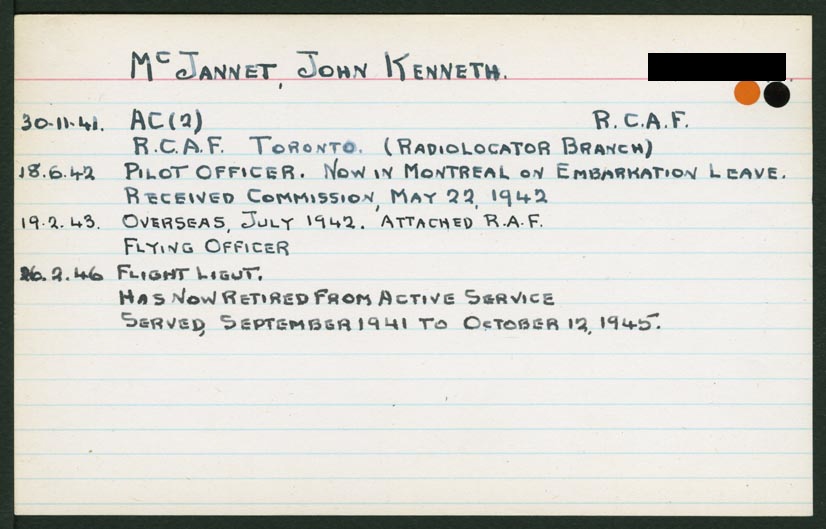 McJANNET, JOHN KENNETH.
30.11.41. AC(2) R.C.A.F.
R.C.A.F. TORONTO. (RADIOLOCATOR BRANCH)
18.6.42 PILOT OFFICER. NOW IN MONTREAL ON EMBARKATION LEAVE.
RECEIVED COMMISSION, MAY 22, 1942
19.2.43. OVERSEAS, JULY 1942. ATTACHED R.A.F.
FLYING OFFICER
26.2.46 FLIGHT LIEUT.
HAS NOW RETIRED FROM ACTIVE SERVICE
SERVED, SEPTEMBER 1941 TO OCTOBER 12, 1945.